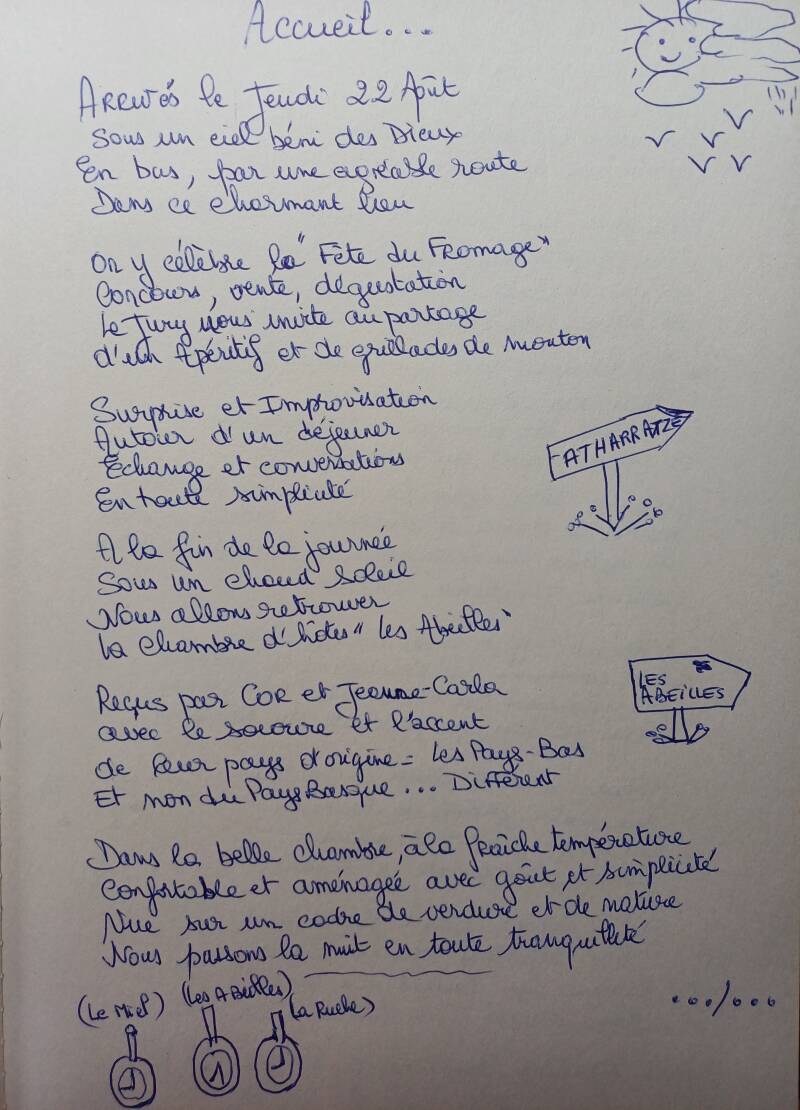 Accueil...
Arrivés le Jeudi 22 Août
Sous un ciel béni des Dieux
En bas, par une agréable route
Dans ce charmant lieu
On y célèbre la "Fête du Fromage"
Concours, vente, dégustation
Le Jury nous invite au partage
d'un Apéritif et de grillades de mouton
Surprise et Improvisation
Autour d'un déjeuner
Echange et conversations
En toute simplicité
ATHARRATZE
A la fin de la journée
Sous un chaud soleil
Nous allons retrouver
La chambre d'hôtes "Les Abeilles"
Reçus par COR et Jeanne-Carla
avec le sourire et l'accent
de leur pays d'origine = Les Pays-Bas
Et non du Pays Basque... Différent
LES
ABEILLES
Dans la belle chambre, à la fraîche température
Confortable et aménagée avec goût et simplicité
Vue sur un cadre de verdure et de nature
Nous passons la nuit en toute tranquillité
(Le Miel) (Les Abeilles) (La Ruche)
.../...